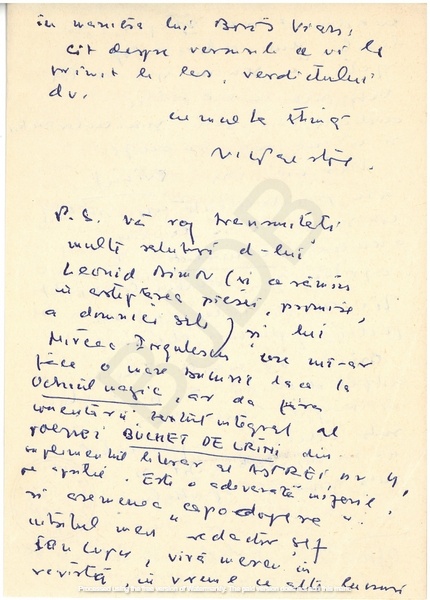 în maniera lui Boris Vian.
Cît despre versurile ce vi le
trimit le las verdictului
dv.
cu multă stimă
P.S. Vă rog transmiteți
multe salutări d-lui
Leonid Dimov (și a rămîn
în așteptarea piesei, promise,
a domniei sale) și lui
Mircea Iorgulescu care mi-ar
face o mare bucurie dacă la
Ochiul magic, ar da fără
comentării textul integral al
poeziei BUCHET DE CRINI din
suplimentul literar al ASTREI nr 4,
pe aprilie. Este o adevărată mizerie,
și asemenea "capodopere"
redactor șef
Dan Lupu, viră mereu în
revistă, în vreme ce alte lucruri
BJDB